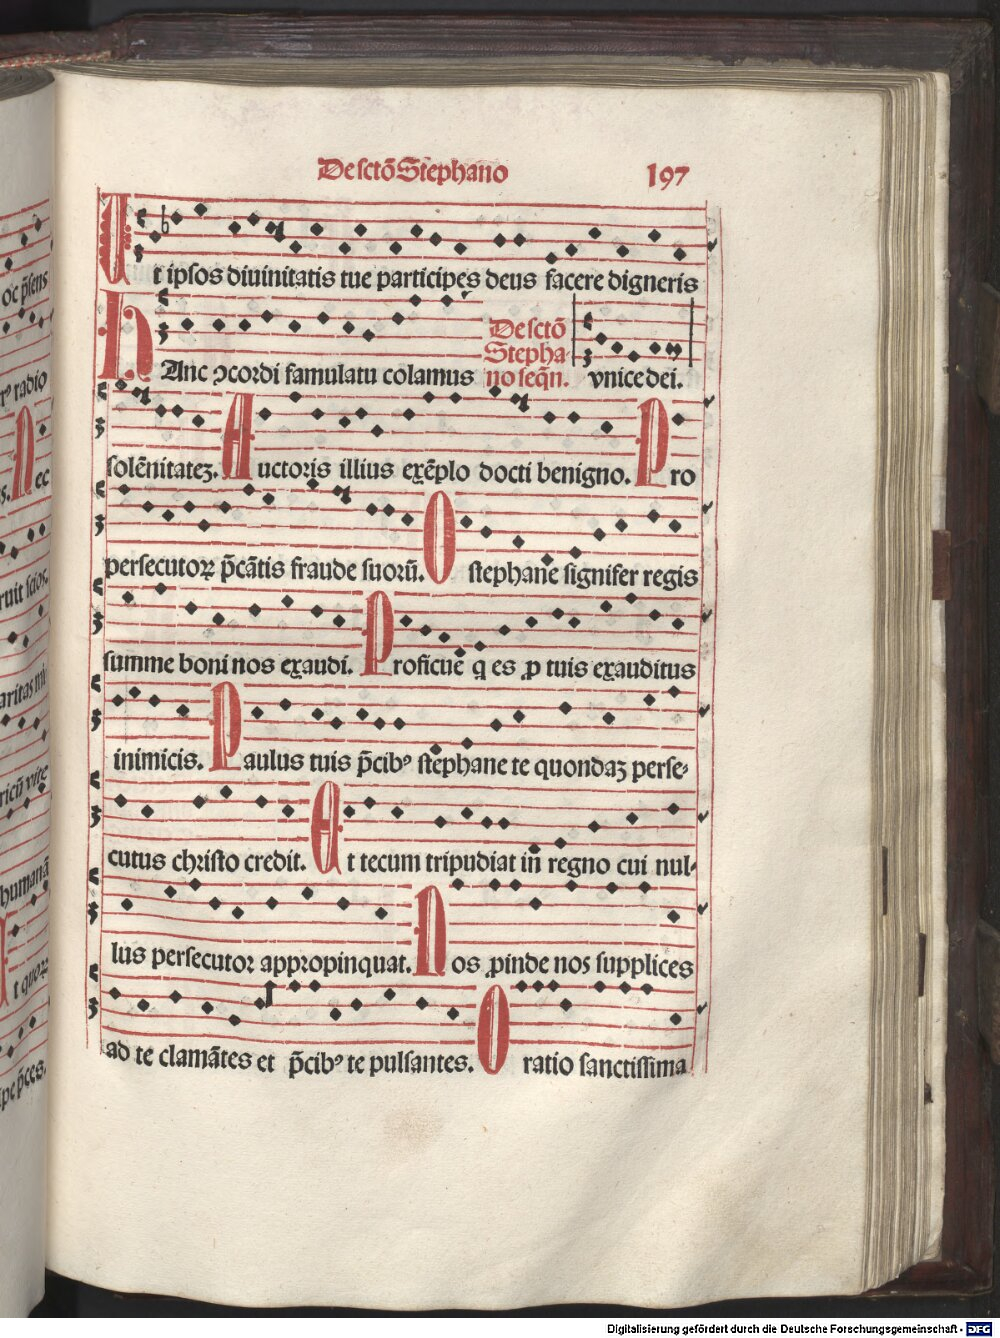 De sctō Stephano 197
Ut ipsos diuinitatis tue participes deus facere digneris
De sctō
Stepha-
HAnc ↄcordi famulatu colamus no seqn̄. vnice dei.
solēnitateʒ. Auctoris illius exēplo docti benigno. Pro
persecutoꝝ p̄cātis fraude suorū. O stephane signifer regis
summe boni nos exaudi. Proficue q es ꝓ tuis exauditus
inimicis. Paulus tuis p̄cibꝰ stephane te quondaʒ perse-
cutus christo credit. Et tecum tripudiat in regno cui nul-
lus persecutor appropinquat. Nos ꝓinde nos supplices
ad te clamātes et p̄cibꝰ te pulsantes. Oratio sanctissima
oc p̄sens
rꝰ radio
s. Nec
ruit scios.
aritas mi
ricū virg
humanā
t quoꝝ
ipe p̄ces.
Digitalisierung gefördert durch die Deutsche Forschungsgemeinschaft - DFG